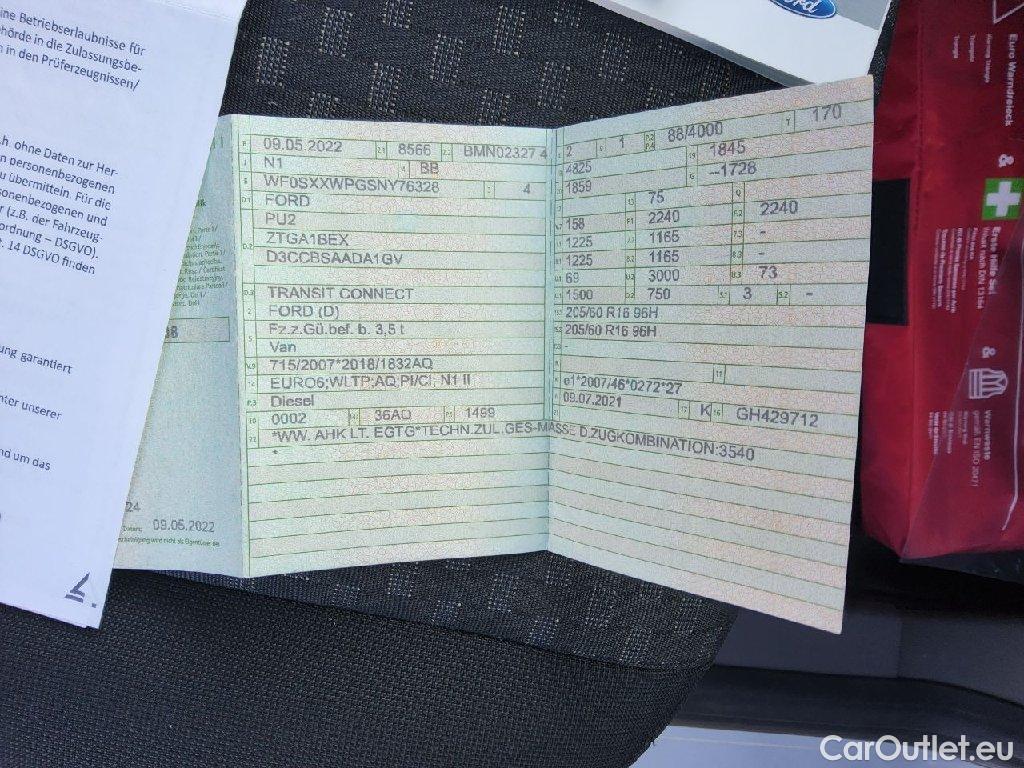 ine Betriebserlaubnisse für
ehörde in die Zulassungsbe-
n in den Prüferzeugnissen/
h. ohne Daten zur Her-
n personenbezogenen
u übermitteln. Für die
rsonenbezogenen und
r (z.B. der Fahrzeug-
ordnung – DSGVO).
. 14 DSGVO finden
ung garantiert
nter unserer
nd um das
09.05.2022 8566 BMN02327 4
N1 BB
WF0SXXWPGSNY76328 4
FORD
PU2
ZTGA1BEX
D3CCBSAADA1GV
TRANSIT CONNECT
FORD (D)
Fz.z.Gü.bef. b. 3,5 t
Van
715/2007*2018/1832AQ
EURO6;WLTP;AQ;PI/CI, N1 II
Diesel
0002 36AQ 1499
*WW. AHK LT. EGTG*TECHN.ZUL.GES-MASSE D.ZUGKOMBINATION:3540
*
2 1 88/4000 170
4825 1845
1859 --1728
75
158 2240 2240
1225 1165 -
1225 1165 -
69 3000 73
1500 750 3 -
205/60 R16 96H
205/60 R16 96H
-
e1*2007/46*0272*27
09.07.2021 K GH429712
24
09.05.2022
Ford
Euro Warndreieck
Warning Triangle
&
Erste Hilfe Set
Inhalt nach DIN 13164
&
Warnweste
gemäß EN ISO 20471
CarOutlet.eu